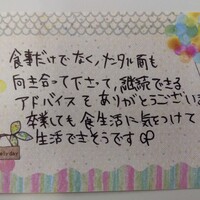 食事だけでなく、メンタル面も
向き合って下さって、継続できる
アドバイスをありがとうございま
卒業しても食生活に気をつけて
生活できそうです